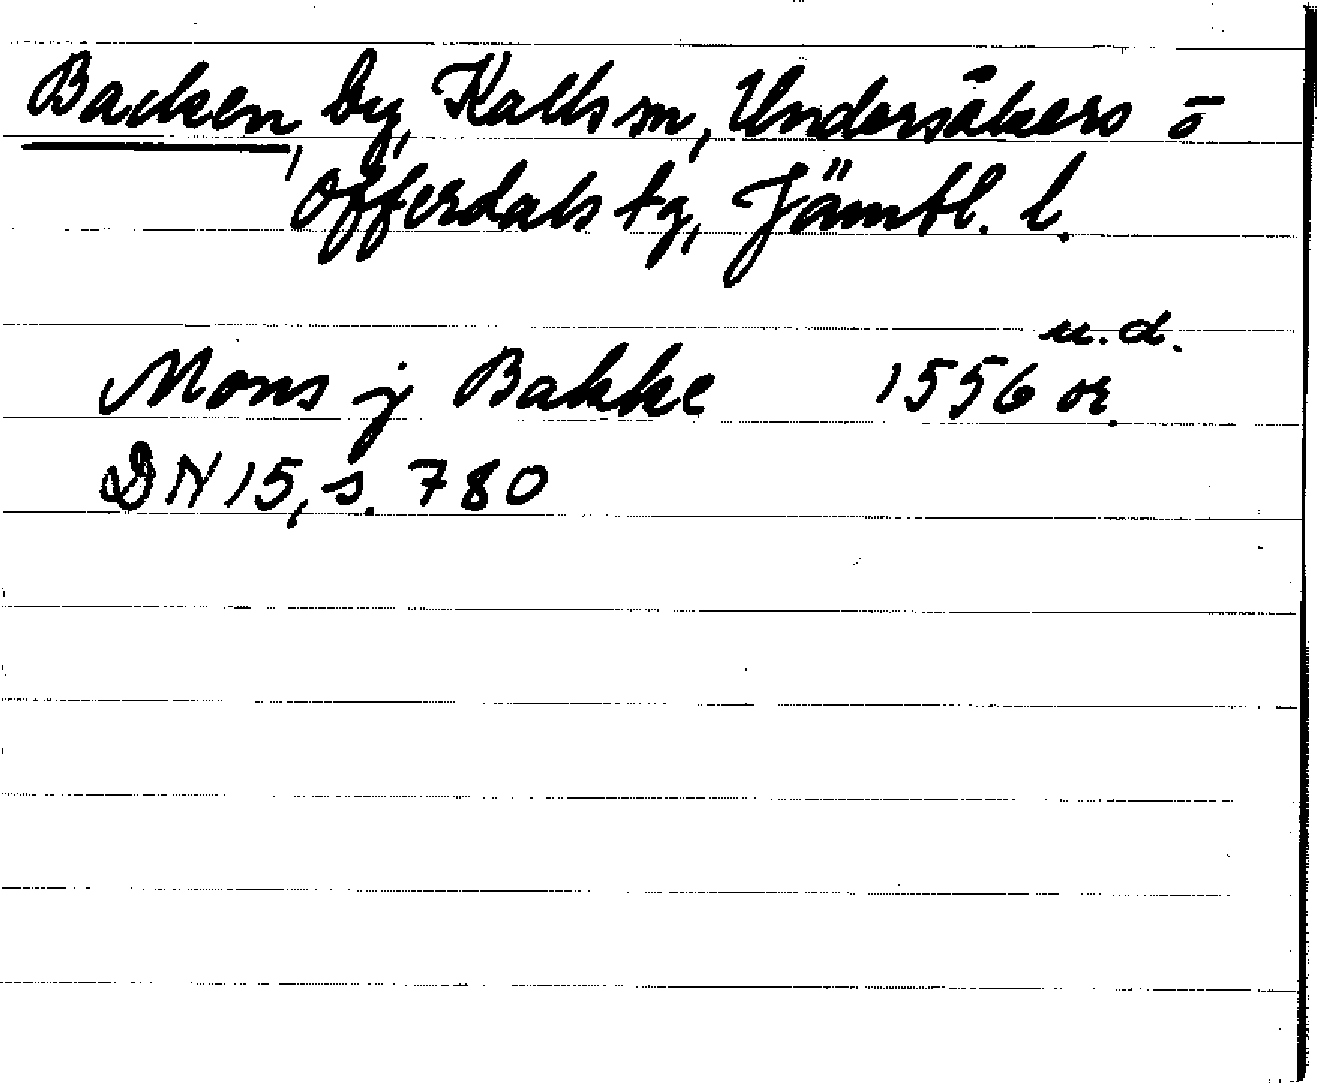 Backen, by, Kalls sn, Undersåkers o
Offerdals tg, Jämtl. l.
u.d.
Mons j Bakke 1556 or.
DN 15, s. 780